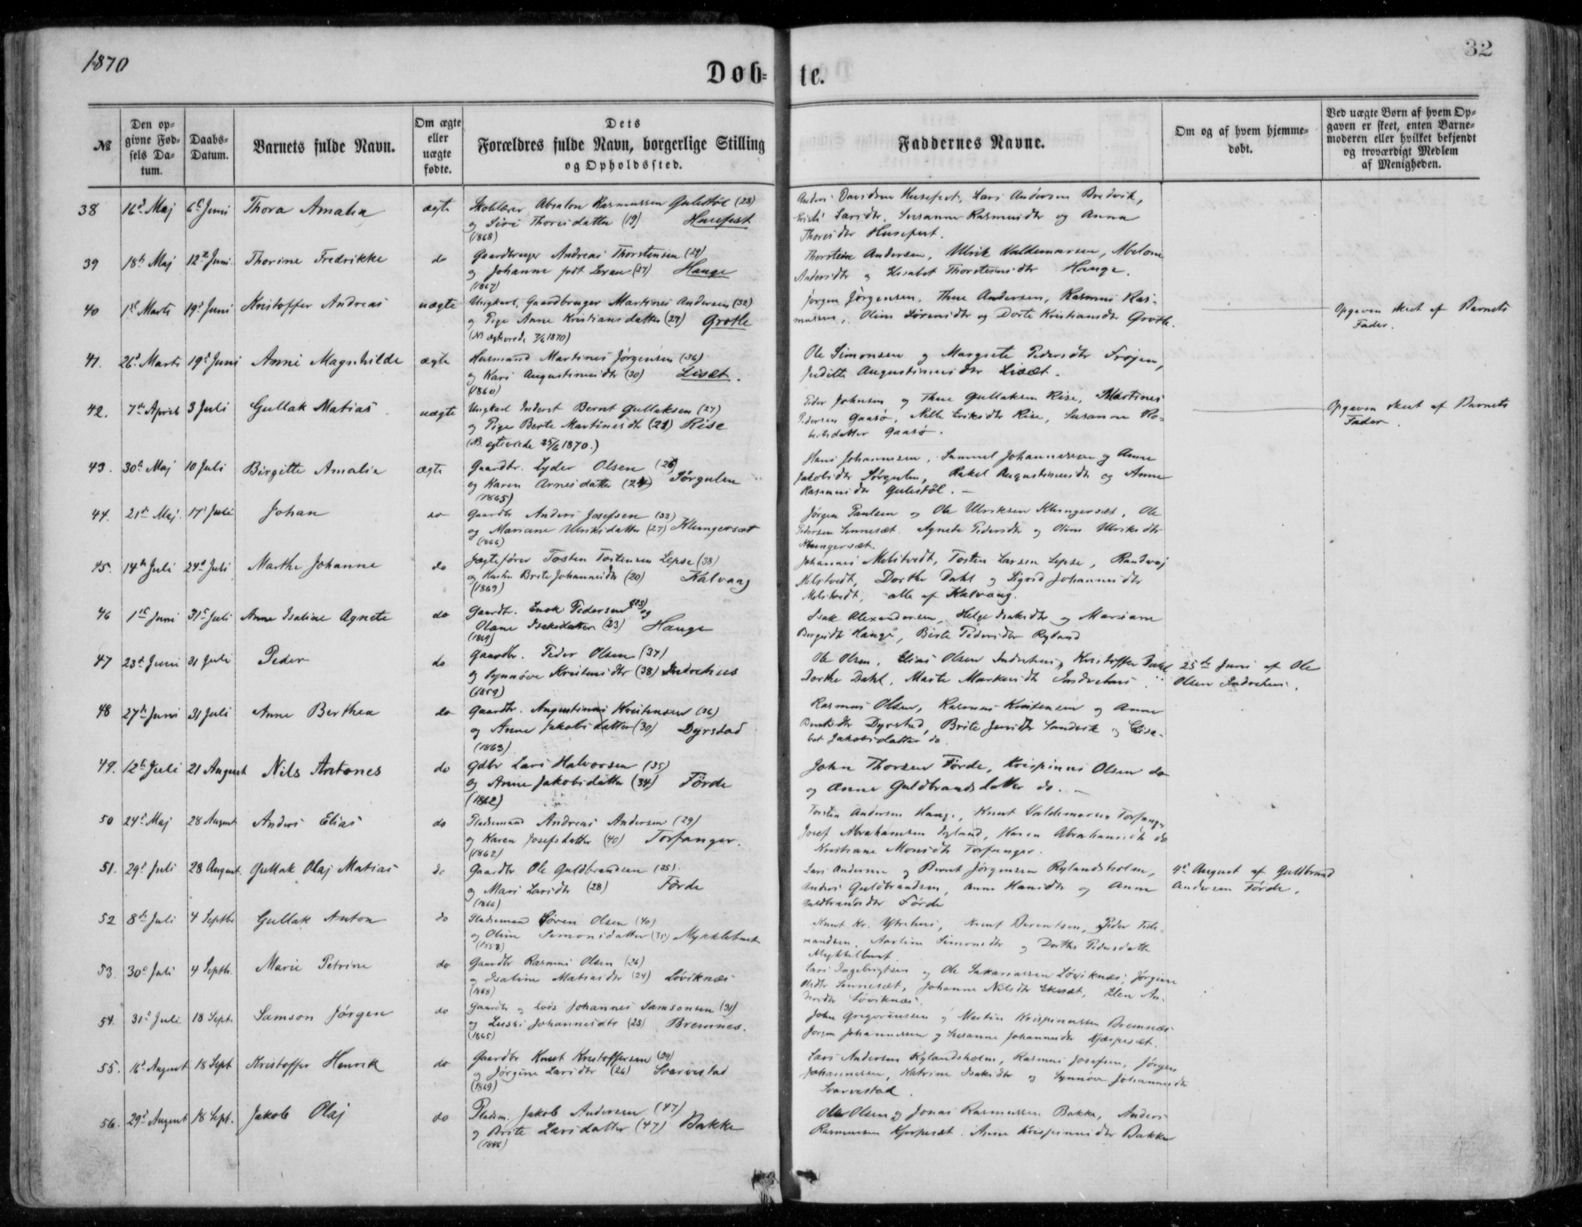 1870
32
Døb-
te.
№
Den op-
givne Fød-
sels Da-
tum.
Daabs-
Datum.
Barnets fulde Navn.
Om ægte
eller
uægte
fødte.
Dets
Forældres fulde Navn, borgerlige Stilling
og Opholdssted.
Faddernes Navne.
Om og af hvem hjemme-
døbt.
Ved uægte Børn af hvem Op-
gaven er skeet, enten Barne-
moderen eller hvilket bekjendt
og troværdigt Medlem
af Menigheden.
38 16d Maj 6t Juni Thora Amalia ægte Absalon Rasmussen Gulestøl (28)
og Siri Thoresdatter (19) Husefest
(1868)
Anders Davidsen Husefest, Lars Andersen Bredvik,
Larsdtr, Susanne Rasmusdtr og Anna
Thoresdtr Husefest.
39 18de Maj 12te Juni Thorine Fredrikke do Gaardbruger Andreas Thorstensen (29)
og Johanne født (27) Hauge
(1867)
Thorstein Andersen, Ulrik Valdemarsen, Abelone
Andersdtr og Elisabet Thorsteinsdtr Hauge.
40 1st Marts 19de Juni Kristoffer Andreas uægte Ungkarl, Gaardbruger Martines Andersen (32)
og Pige Anne Kristiansdatter (27) Grotle
(NB. 1870)
Jørgen Jørgensen, Thue Andersen, Rasmus Ras-
mussen, Oline Sørensdtr og Dorte Kristiansdtr Grotle.
Opgaven skeet af Barnets
Fader.
41. 26d Marts 19de Juni Anne Magnhilde ægte Husmand Martines Jørgensen (36)
og Kari Augustinusdtr (30) Lisæt.
(1860)
Ole Simonsen og Margrete Pedersdtr Frøjen,
Judith Augustinusdtr Lisæt.
42. 7de April 3 Juli Gullak Matias uægte Ungkarl Inderst Bernt Gullaksen (27)
og Pige Berte Martinesdtr (21) Rise
(NB. 1870.)
Peder Johnsen og Thue Gullaksen Rise, Martines
Pedersen Gaasø, Nille Eriksdtr Rise, Susanne Ro-
bertsdatter Gaasø.
Opgaven skeet af Barnets
Fader.
43. 30de Maj 10 Juli Birgitte Amalia ægte Gaardbr. Lyder Olsen (26)
og Karen Arnesdatter (24) Sørgulen
(1865)
Hans Johannesen, Samuel Johannessen og Anne
Jakobsdtr Sørgulen, Rakel Augustinusdtr og Anne
Rasmusdtr Gulestøl.
44. 21de Maj 17de Juli Johan do Gaardbr Anders Josefsen (33)
og Mariane Ulriksdatter (27) Klungersæt
(1866)
Jørgen Paulsen og Ole Ulriksen Klungersæt, Ole
Pedersen Sennesæt, Agnete Pedersdtr og Oline Ulriksdtr
Klungersæt.
45. 14de Juli 24de Juli Marthe Johanne do Jægtefører Tosten Tostensen Lepsø (38)
og Brite Johannesdtr (20) Kalvaag
(1869)
Johannes Mølstredt, Tosten Larsen Lepsø,
Mølstredt, Dorthe Dahl og Sigrid Johannesdtr
Mølstredt, alle af Kalvaag.
46 1st Juni 31st Juli Anne Isaline Agnete do Gaardbr. Enok Pedersen og
Olane Isaksdatter (23) Hauge
(1869)
Isak Alexandersen, Helge Isaksdtr og Mariane
Hauge, Birte Pedersdtr Ryland
47 23de Juni 31 Juli Peder do Gaardbr. Peder Olsen (37)
og Synnøve Kristensdtr (38) Indrehus
(1859)
Ole Olsen, Elias Olsen Indrehus, Kristoffer Dahl
Dorthe Dahl, Marte Markusdtr Indrehus
25de Juni af Ole
Olsen Indrehus.
48 27de Juni 31 Juli Anne Berthea do Gaardbr. Augustinus Kristensen (36)
og Anne Jakobsdatter (30) Dyrstad
(1863)
Rasmus Olsen, Rasmus Kristensen og Anne
Dyrstad, Brite Jensdtr Sandvik og Elisa-
bet Jakobsdatter do.
49. 12te Juli 21 August Nils Antones do Gdbr Lars Halvorsen (35)
og Anne Jakobsdatter (34) Førde
(1862)
John Thorsen Førde, Krispinus Olsen do
og Anne Guldbrandsdatter do.
50 24de Maj 28 August Anders Elias do Pladsmand Andreas Andersen (29)
og Karen Josefsdatter (40) Torfanger.
(1862)
Torsten Andersen Hauge, Knut Valdemarsen Torfanger
Josef Abrahamsen Ryland, Karen Abrahamsdtr do
Kristiane Monsdtr Torfanger.
51. 29de Juli 28 August. Gullak Olaj Matias do Gaardbr Ole Guldbrandsen (25)
og Mari Larsdtr (28) Førde
(1866)
Lars Andersen og Bernt Jørgensen Rylandsholm,
Anders Guldbrandsen, Anne Hansdtr og Anne
Guldbrandsdtr Førde
4de August af Guldbrand
Andersen Førde.
52 8de Juli 4 Septbr Gullak Anton do Pladsmand Søren Olsen (40)
og Oline Simonsdatter (35) Myklebust
(1858)
Knut Kr. Ytrehus, Knut Berentsen, Peder Fede-
Karoline Simonsdtr og Dorthe Pedersdatter
Myklebust.
53. 30de Juli 4 Septbr. Marie Petrine do Gaardbr Rasmus Olsen (26)
og Isaline Matiasdtr (24) Løviknæs
(1868)
Lars Ingebrigtsen og Ole Sakariassen Løviknæs, Jørgine
Olsdtr Sennesæt, Johanne Nilsdtr Ekesæt, Elen An-
dersdtr Løviknæs.
54. 31te Juli 18 Sept. Samson Jørgen do Gaardbr og Lods Johannes Samsonsen (31)
og Johannesdtr (25) Bremnes.
(1865)
John Gregoriussen og Martin Krispinussen Bremnes
Jørgen Johannessen og Susanne Johannesdtr
55. 16de August 18 Sept Kristoffer Henrik do Gaardbr Knut Kristoffersen (29)
og Jørgine Larsdtr (26) Svarvestad
(1869)
Lars Andersen Rylandsholm, Rasmus Josefsen, Jørgen
Johannessen, Katrine Isaksdtr og Synnøve Johannesdtr
Svarvestad.
56. 29de August 18 Sept. Jakob Olaj do Pladsm. Jakob Andersen (47)
og Brite Larsdatter (47) Bakke
(1846)
Ole Olsen og Jonas Rasmussen Bakke, Anders
Rasmussen, Anne Krispinusdtr Bakke